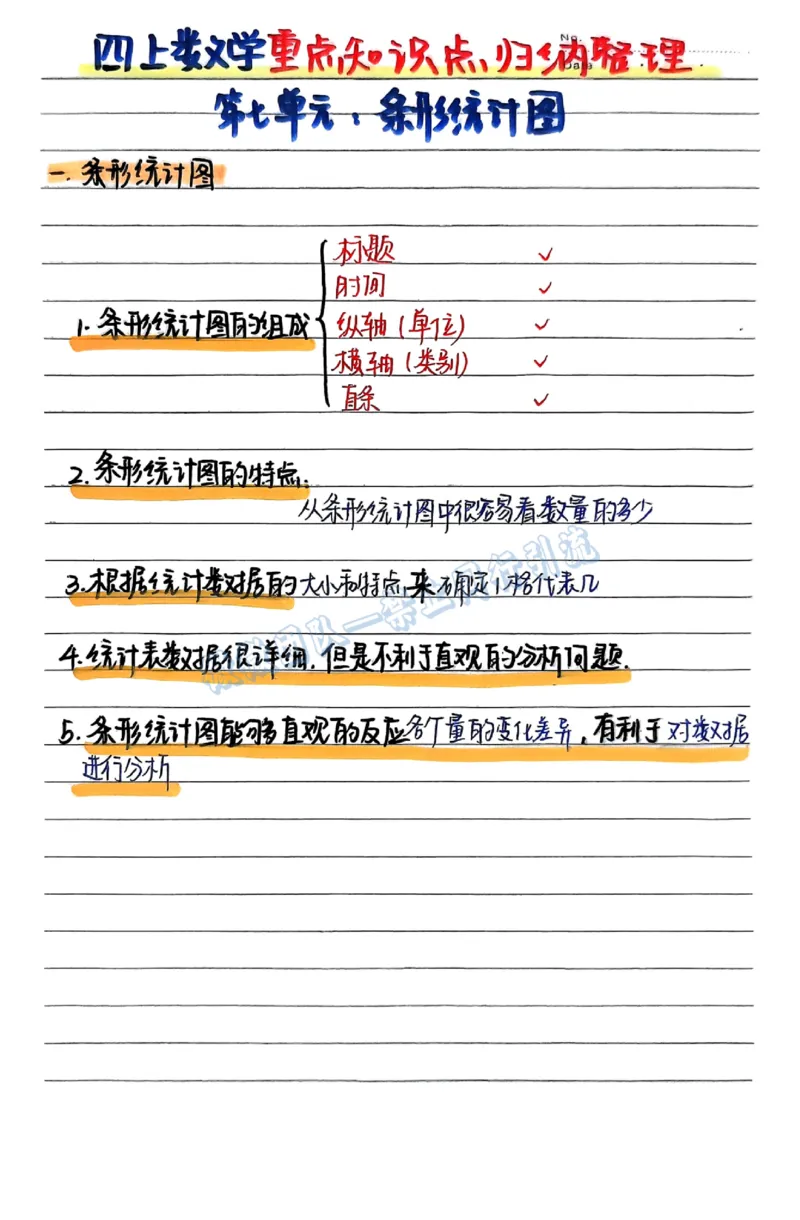 四上数学重点知识点归纳整理
No.
Date
第七单元：条形统计图
一.条形统计图
标题 ✓
时间 ✓
1.条形统计图的组成
纵轴（单位） ✓
横轴（类别） ✓
直条 ✓
2.条形统计图的特点：
从条形统计图中很容易看数量的多少
3.根据统计数据的大小和特点来确定1格代表几
4.统计表数据很详细，但是不利于直观的分析问题.
5.条形统计图能够直观的反应各个量的变化差异，有利于对数据
进行分析